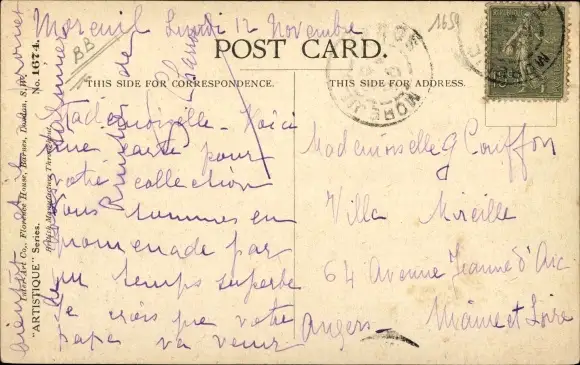 Moreuil Lundi 12 Novembre
1659
BB
POST CARD.
THIS SIDE FOR CORRESPONDENCE.
THIS SIDE FOR ADDRESS.
Mademoiselle. Voici
une carte pour
votre collection
nous sommes en
promenade par
un temps superbe
Je crois que votre
papa va venir
bientôt
Mademoiselle G Couffon
Villa Mireille
64 Avenue Jeanne d'Arc
Angers - Maine et Loire
"ARTISTIQUE" Series.
Inter-Art Co., Florence House, Barnes, London, S.W.
No. 1674.
British Manufacture Throughout.
MOREUIL